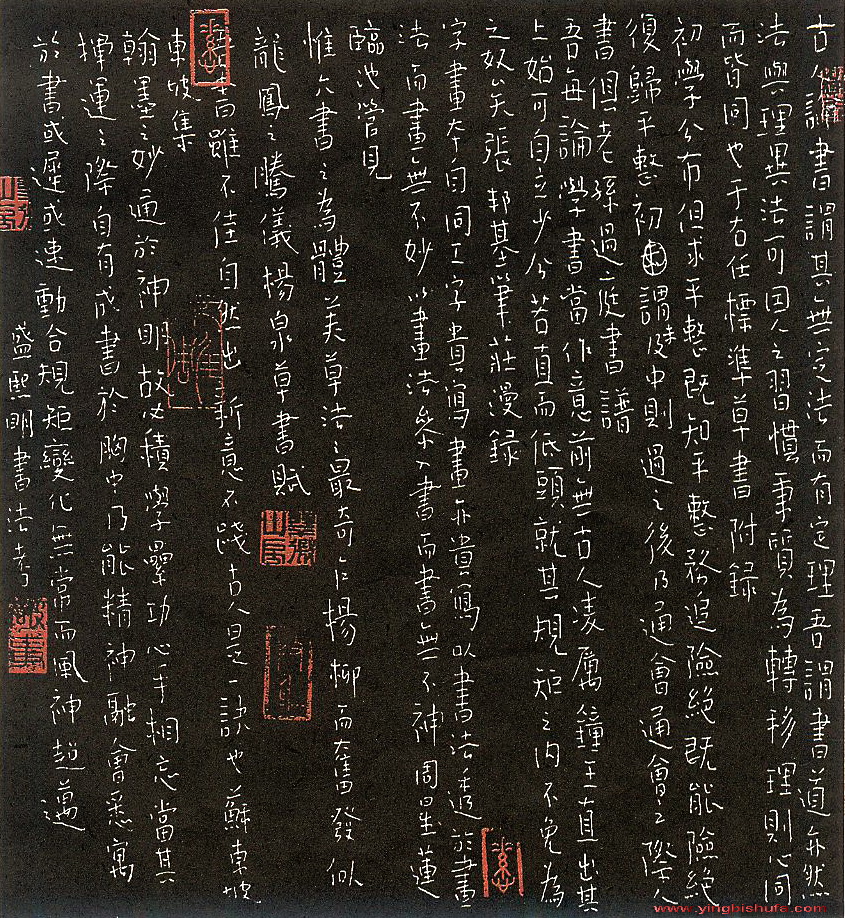 古人論書謂其無定法而有定理吾謂書道亦然
法與理異法可因人之習慣秉質為轉移理則心同
而皆同也于右任標準草書附錄
初學分布但求平整既知平整務追險絕既能險絕
復歸平整初謂未及中則過之後乃通會通會之際人
書俱老孫過庭書譜
吾每論學書當作意前無古人凌厲鐘王直出其
上始可自立少分若直而低頭就其規矩之内不免為
之奴矣張邦基筆莊漫錄
字畫本自同工字貴寫畫亦貴寫以書法透於畫
法而畫無不妙以畫法參入書而書無不神周星蓮
臨池管見
惟六書之為體美草法之最奇乍楊柳而奮發似
龍鳳之騰儀楊泉草書賦
吾書雖不佳自然出新意不踐古人是一訣也蘇東坡
東坡集
翰墨之妙通於神明故必積學累功心手相忘當其
揮運之際自有成書於胸中乃能精神融會悉寓
於書或遲或速動合規矩變化無常而風神超邁
盛熙明書法考
www.yingbishufa.com